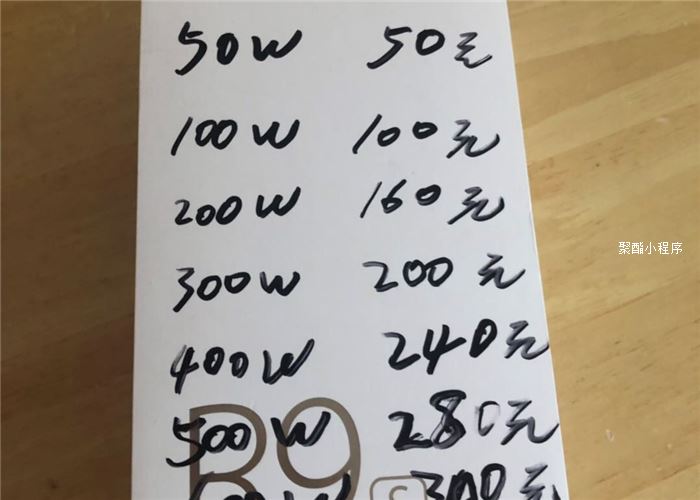 50W 50元
100W 100元
200W 160元
聚酯小程序
300W 200元
400W 240元
500W 280元
R9s
300元